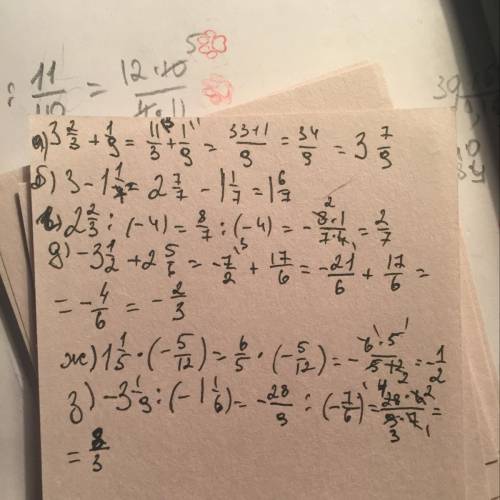 : 11/40 = 12·40/4·11 5
а) 3 2/3 + 1/9 = 11/3 + 1/9 = 33+1/9 = 34/9 = 3 7/9
б) 3 - 1 1/7 = 2 7/7 - 1 1/7 = 1 6/7
в) 2 2/3 : (-4) = 8/7 : (-4) = - 8·1/7·4 = 2/7
д) -3 1/2 + 2 5/6 = - 7/2 + 17/6 = - 21/6 + 17/6 =
= - 4/6 = - 2/3
ж) 1 1/5 · (- 5/12) = 6/5 · (- 5/12) = - 6·5/5·12 = - 1/2
з) -3 1/9 : (-1 1/6) = - 28/9 : (- 7/6) = 28·6/9·7 =
= 8/3